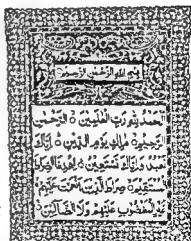 بسم الله الرحمن الرحيم
الحمد لله رب العلمين الرحمن
الرحيم ملك يوم الدين اياك
نعبد واياك نستعين اهدنا الصراط
المستقيم صراط الذين انعمت عليهم
غير المغضوب عليهم ولا الضالين